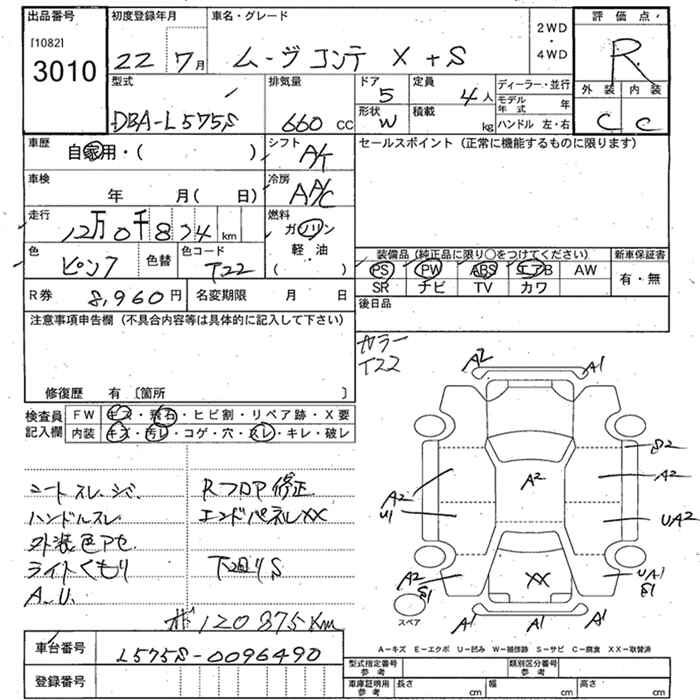 出品番号 初度登録年月 車名・グレード 2WD・4WD 評価点
[1082] 3010 22 7月 ムーヴコンテ X+S R
型式 排気量 ドア 5 定員 4人 ディーラー・並行 外装 内装
DBA-L575S 660 CC 形状 W 積載 kg モデル年式 年 ハンドル 左・右 C C
車歴 自家用・( ) シフト A/T セールスポイント (正常に機能するものに限ります)
車検 年 月( 日) 冷房 AAC
走行 12万0千874 km 燃料 ガソリン・軽油 ( )
色 ピンク 色替 色コード T22
装備品 (純正品に限り○をつけてください) 新車保証書
PS PW ABS エアB AW 有・無
SR ナビ TV カワ
R券 8,960円 名変期限 月 日 後日品
注意事項申告欄 (不具合内容等は具体的に記入して下さい)
カラー
T22
修復歴 有 [箇所 ]
検査員記入欄 FW キズ・飛石・ヒビ割・リペア跡・X要
内装 キズ・汚レ・コゲ・穴・スレ・キレ・破レ
シートスレ、シミ Rフロア修正
ハンドルスレ エンドパネルXX
外装色アセ
ライトくもり 下廻りS
A.U.
120875km
A2 A1
S2
A2 A2 A2
U1 UA2
A2 S1 XX UA1 S1
スペア A1 A1 A1
A-キズ E-エクボ U-凹み W-補修跡 S-サビ C-腐食 XX-取替済
車台番号 L575S-0096490
登録番号
型式指定番号 参考 類別区分番号 参考
車庫証明用 参考 長さ cm 幅 cm 高さ cm